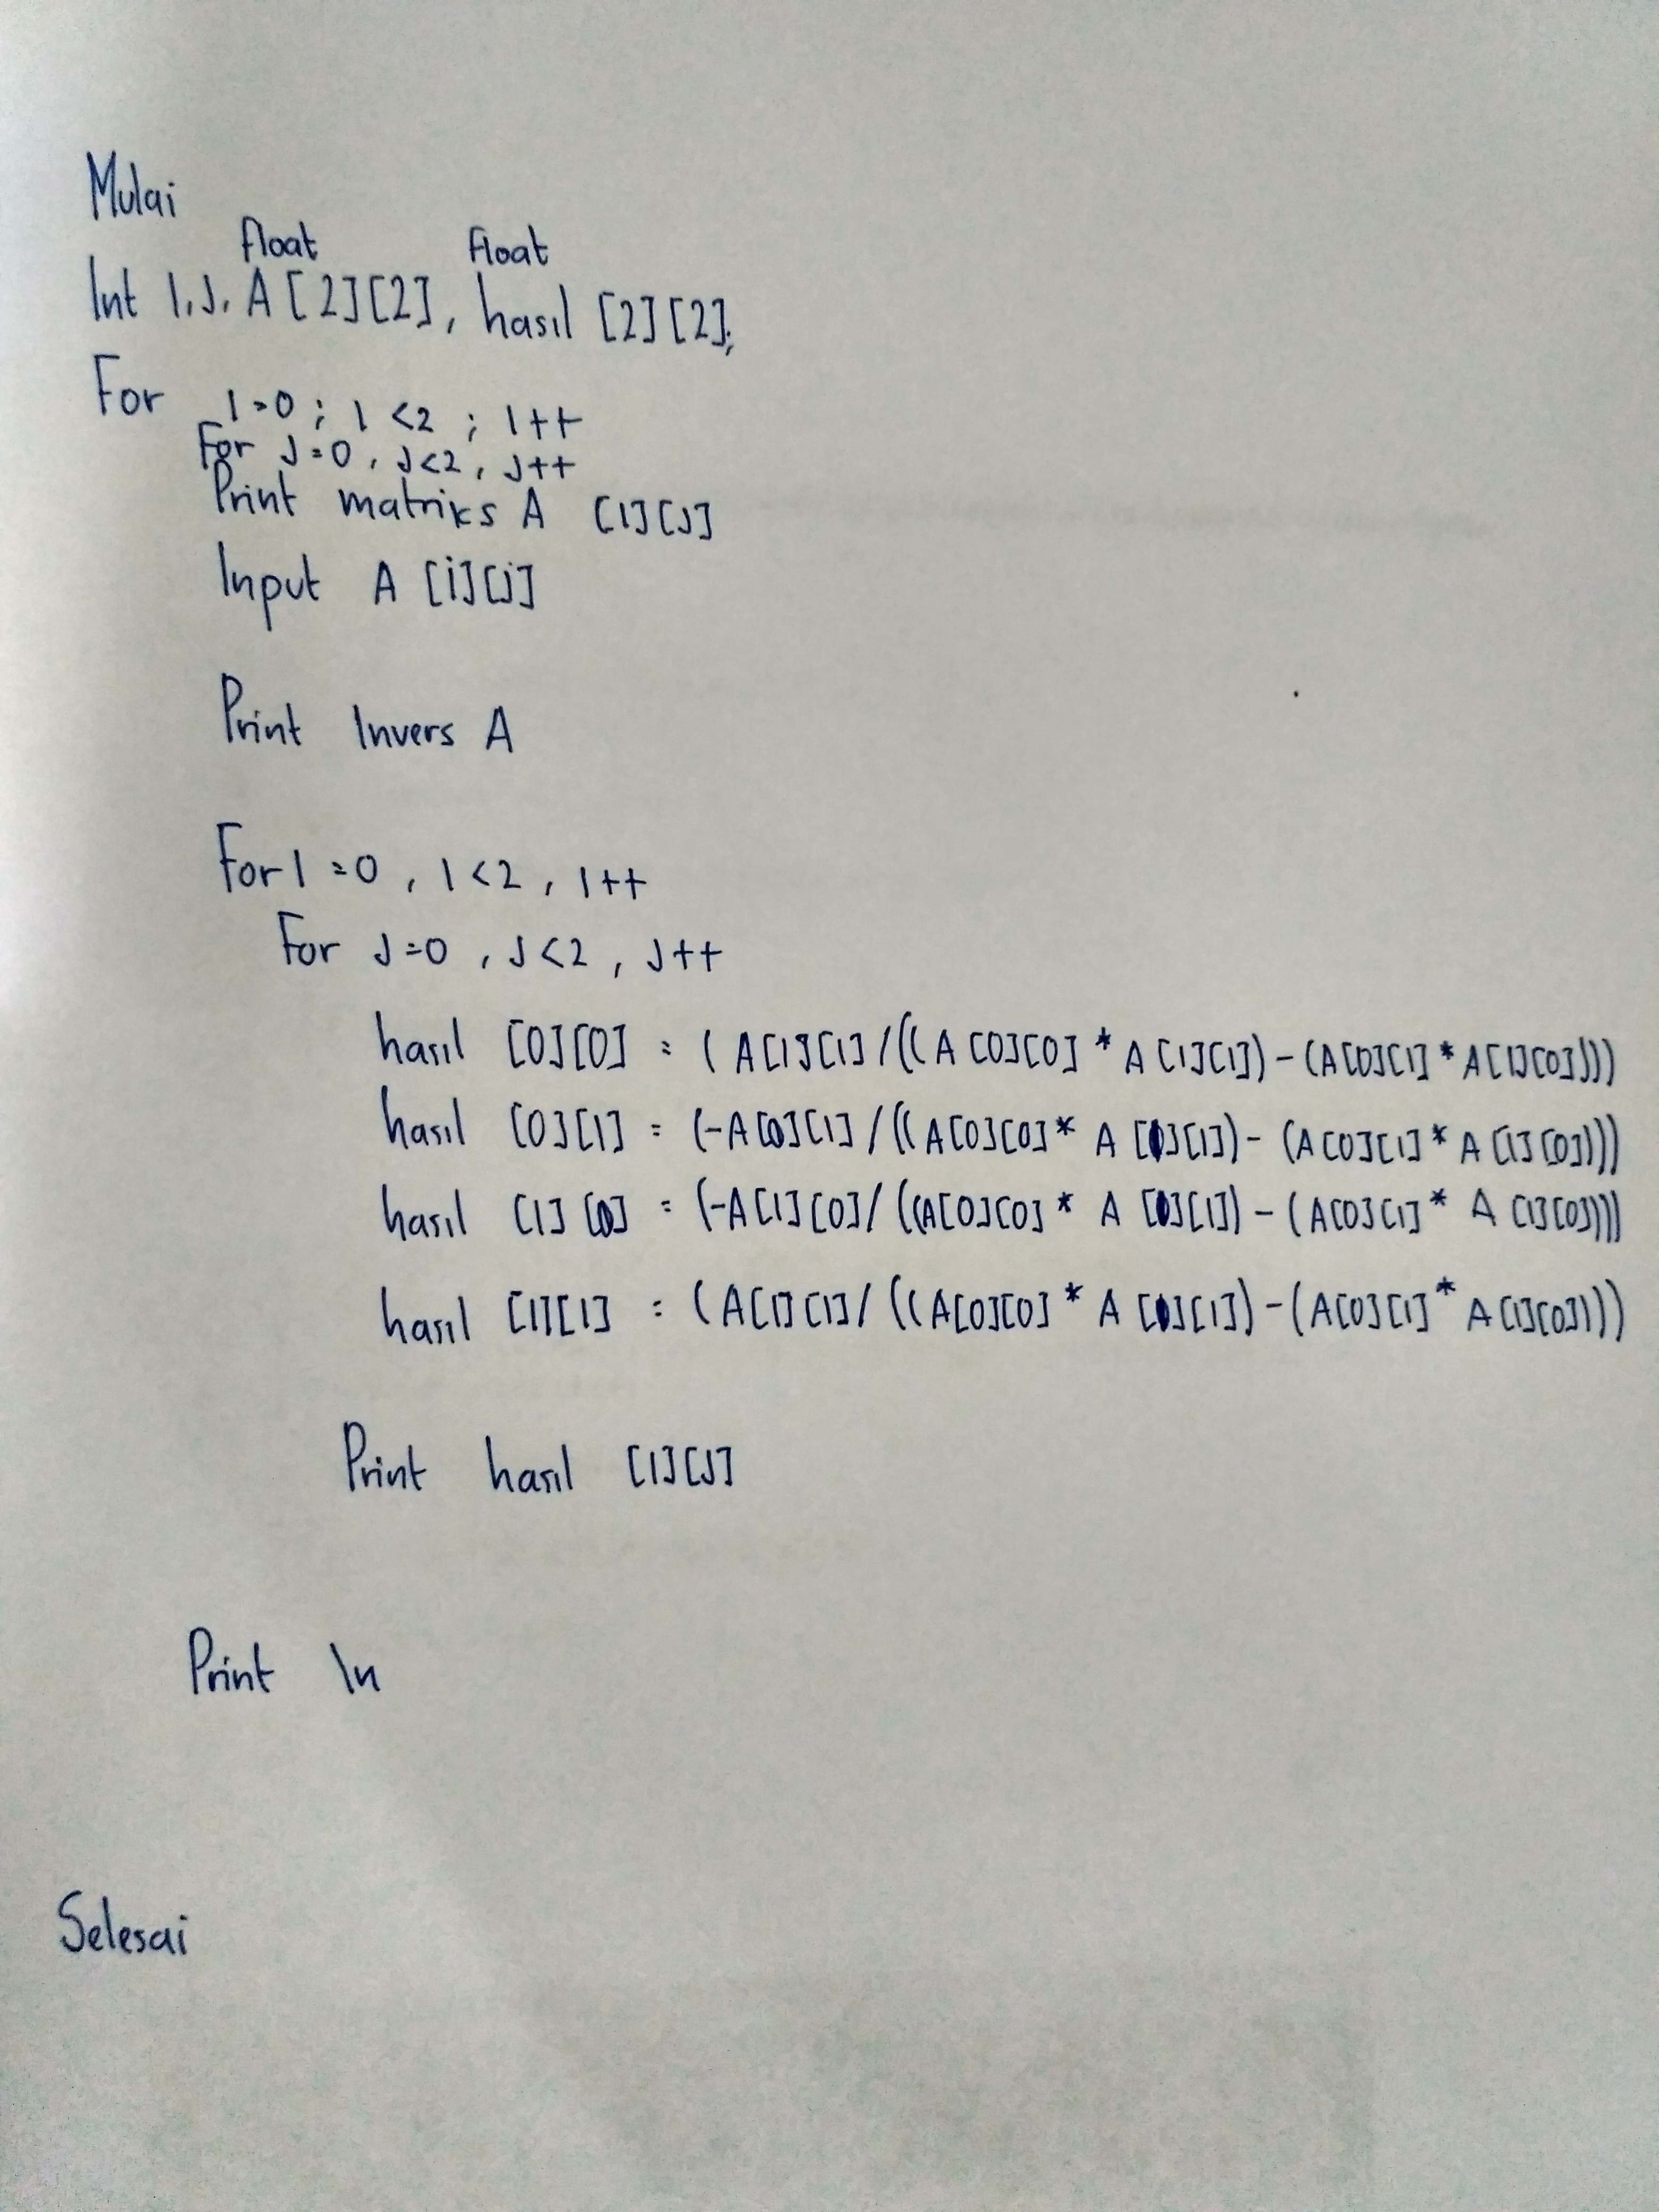 Mulai
float float
Int I, J, A [2][2], hasil [2][2];
For I=0 ; I <2 ; I++
For J=0 , J<2 , J++
Print matriks A [I][J]
Input A [i][j]
Print Invers A
For I =0 , I <2 , I++
For J=0 , J <2 , J++
hasil [0][0] = ( A[1][1] /(( A [0][0] * A [1][1]) - (A[0][1] * A[1][0])))
hasil [0][1] = (-A[0][1] /(( A[0][0] * A [1][1]) - (A[0][1] * A [1][0])))
hasil [1][0] = (-A[1][0] / ((A[0][0] * A [1][1]) - (A[0][1] * A [1][0])))
hasil [1][1] = (A[1][1] / ((A[0][0] * A [1][1]) - (A[0][1] * A[1][0])))
Print hasil [I][J]
Print \n
Selesai